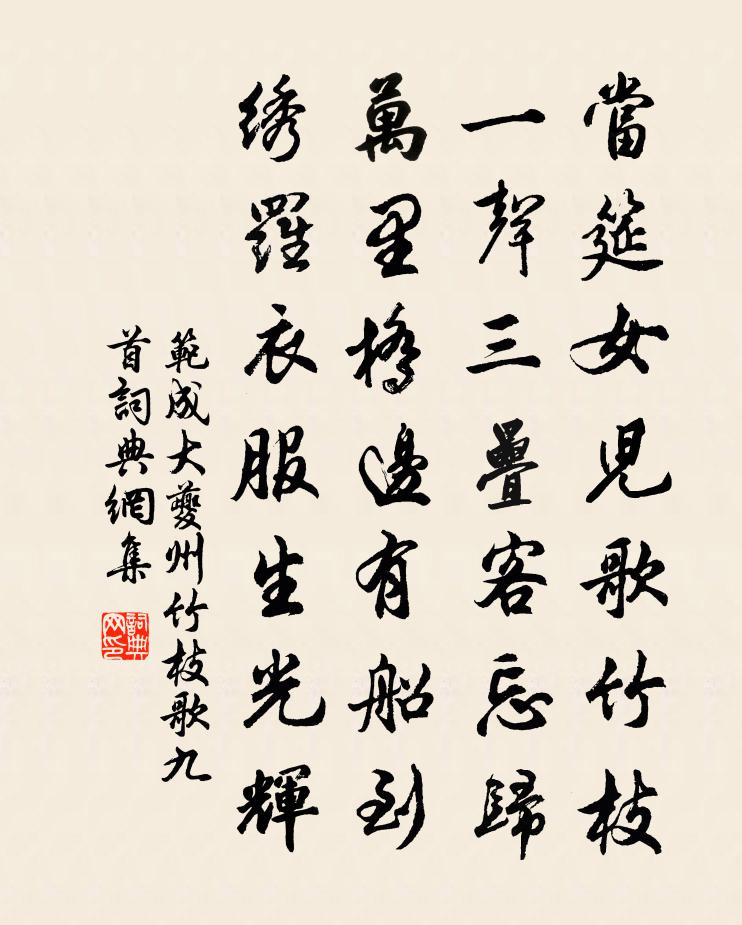 當筵女兒歌竹枝
一聲三疊客忘歸
萬里橋邊有船到
綉羅衣服生光輝
範成大夔州竹枝歌九
首詞典網集
詞典網印